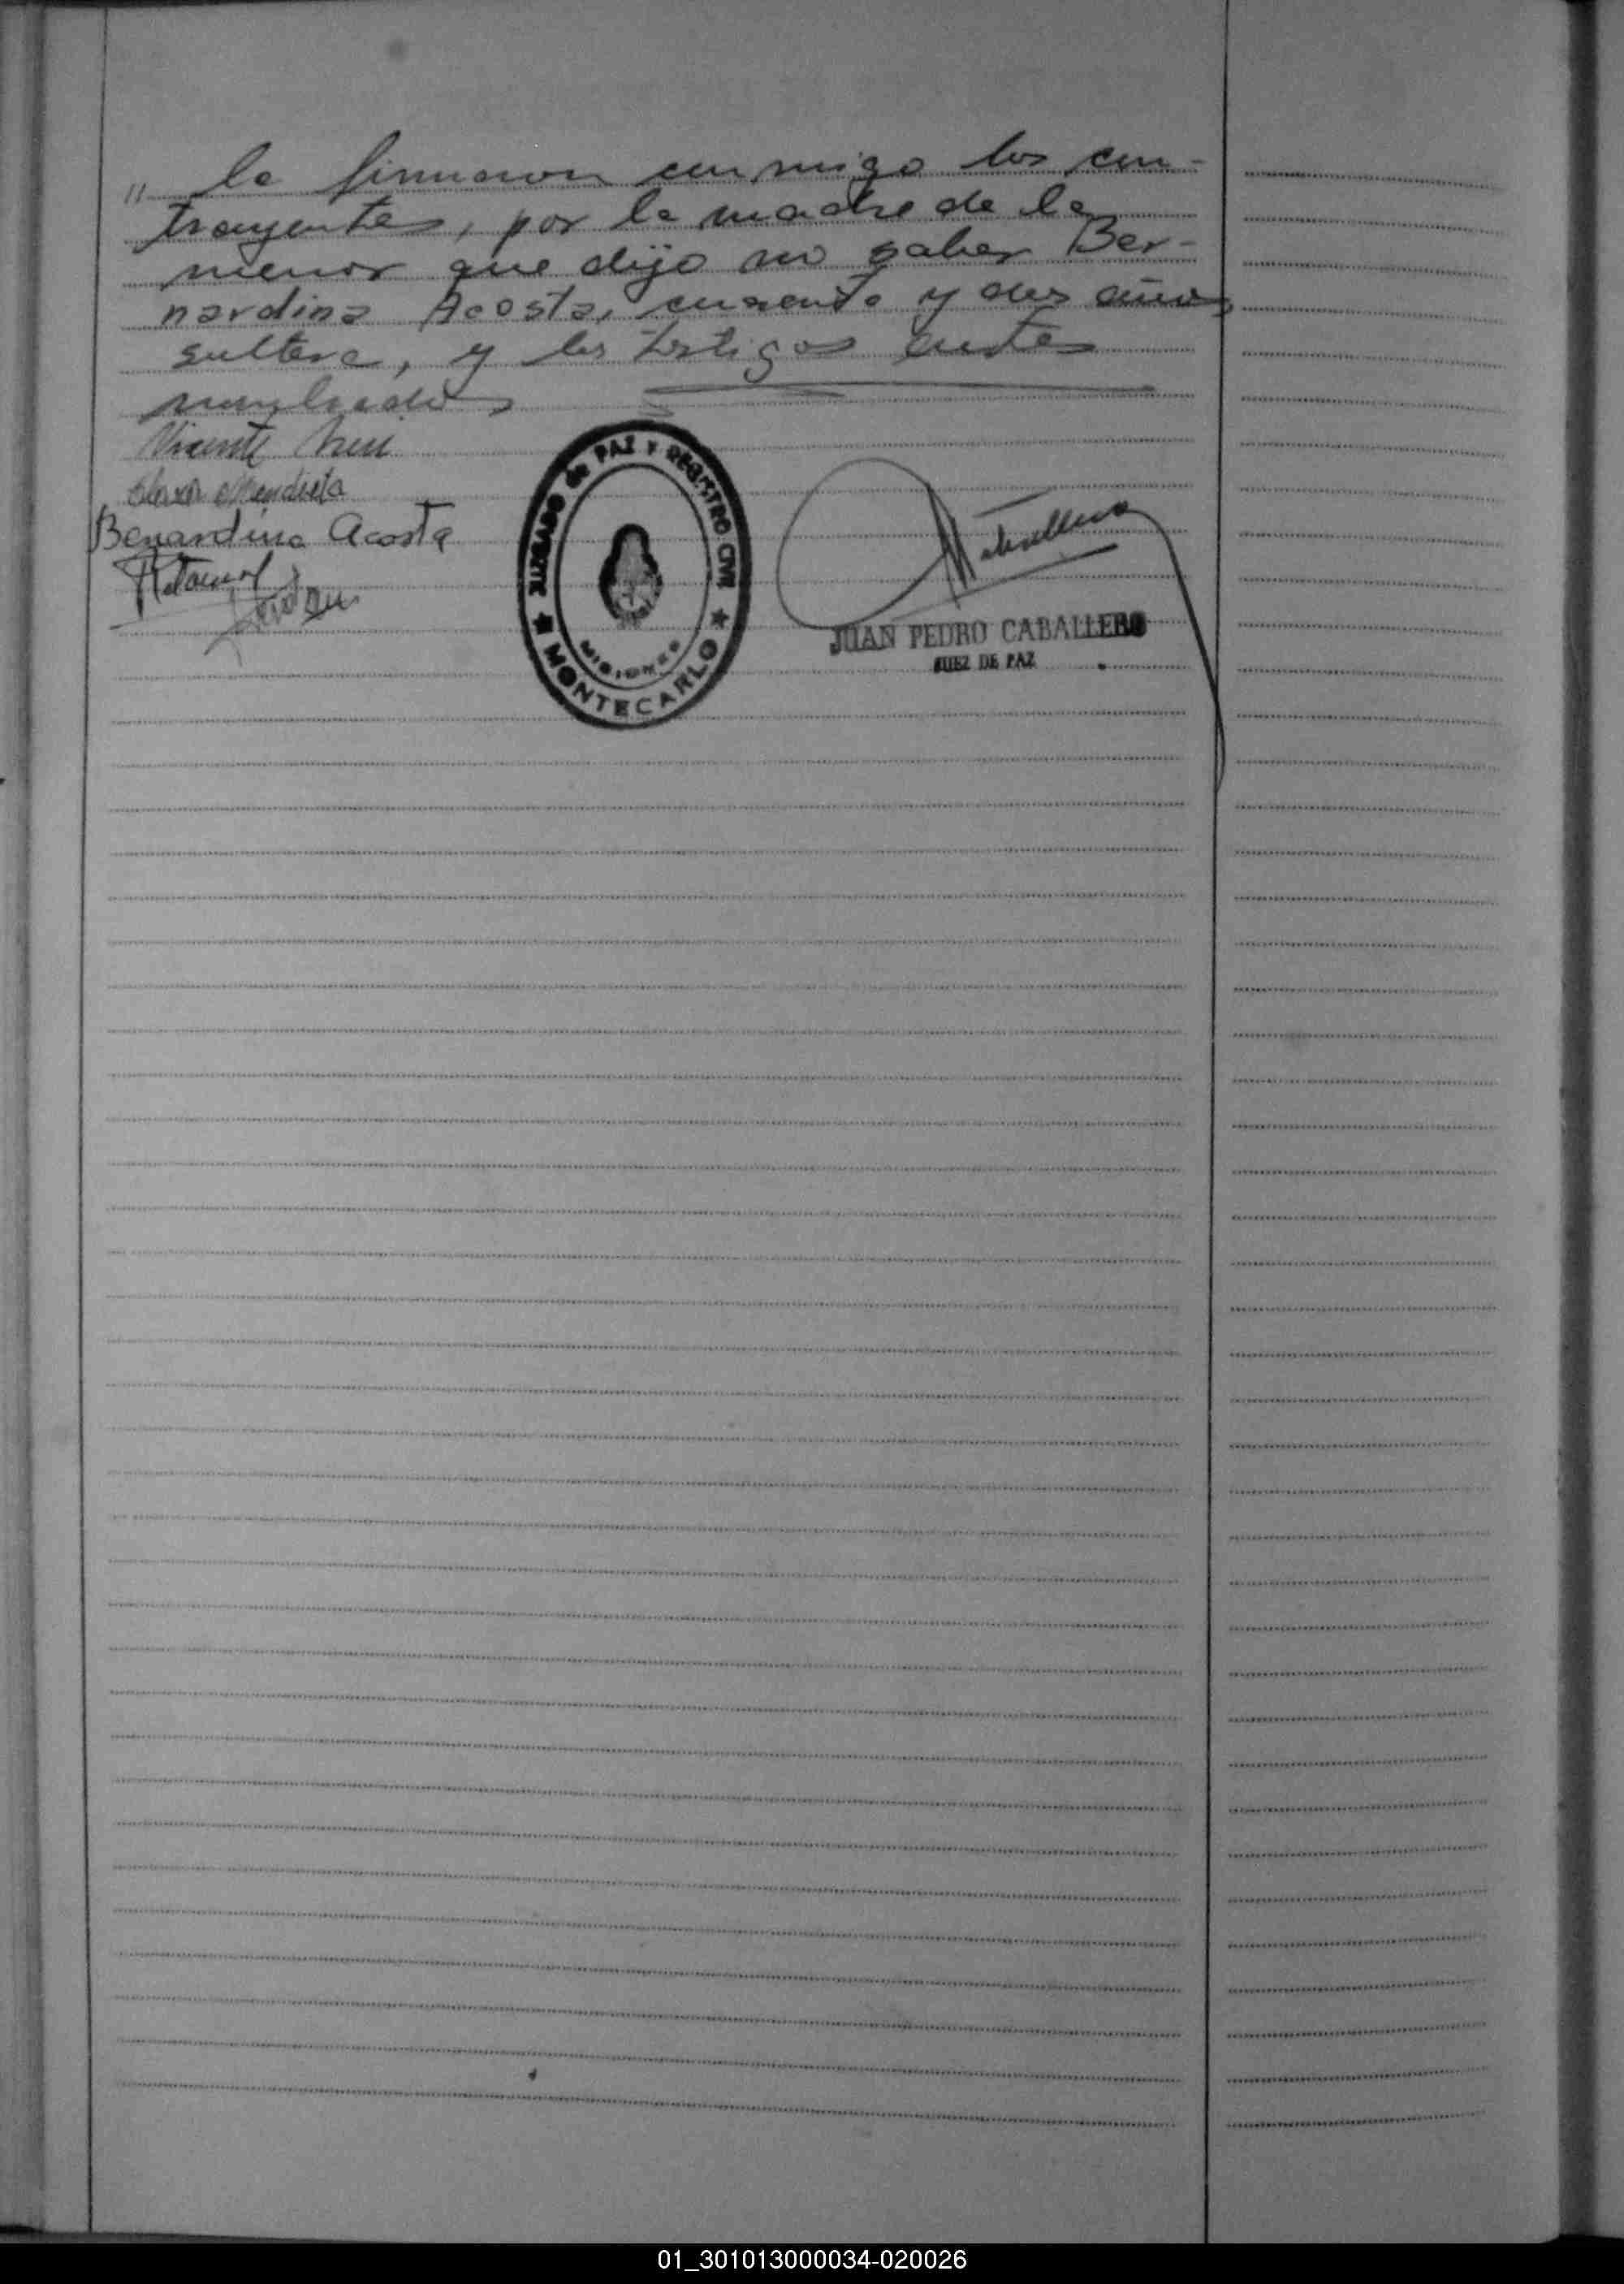 " la firmaron conmigo los con-
trayentes, por la madre de la
menor que dijo no saber Ber-
nardina Acosta, cuarenta y dos años,
soltera, y los testigos antes
nombrados
Vicente
Mendieta
Benardina Acosta
JUZGADO de PAZ Y REGISTRO CIVIL
MISIONES
MONTECARLO
Caballero
JUAN PEDRO CABALLERO
JUEZ DE PAZ
01_301013000034-020026